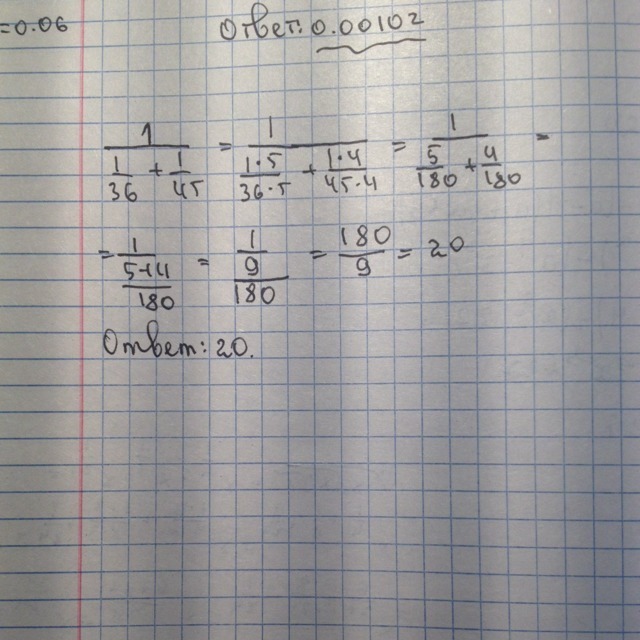 =0.06
Ответ: 0.00102
1/(1/36 + 1/45) = 1/((1·5)/(36·5) + (1·4)/(45·4)) = 1/(5/180 + 4/180) =
= 1/((5+4)/180) = 1/(9/180) = 180/9 = 20
Ответ: 20.